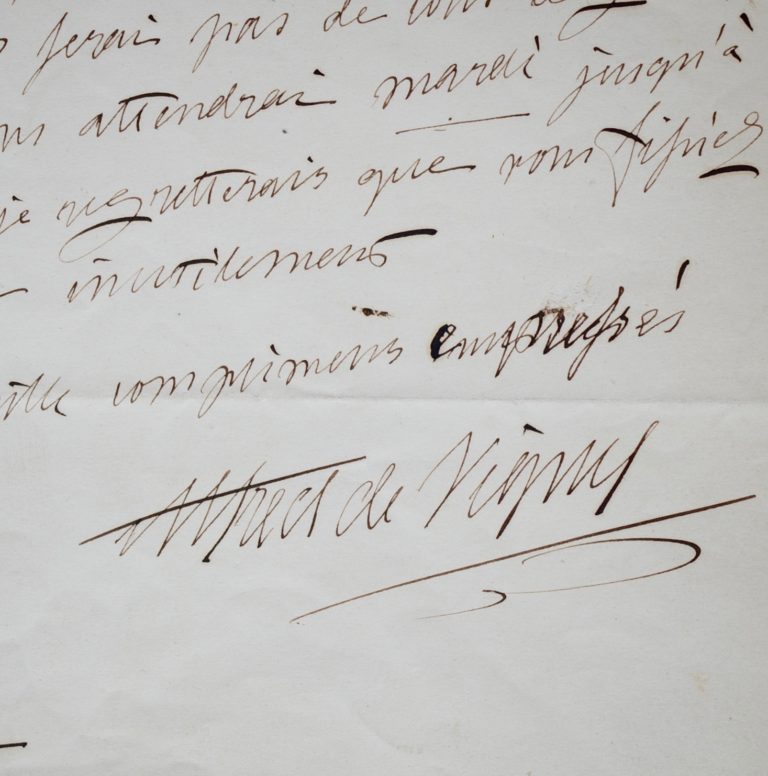 ferais pas de vous
attendrai mardi jusqu'à
je regretterais que vous fissiez
inutilement
mille complimens empressés
Alfred de Vigny